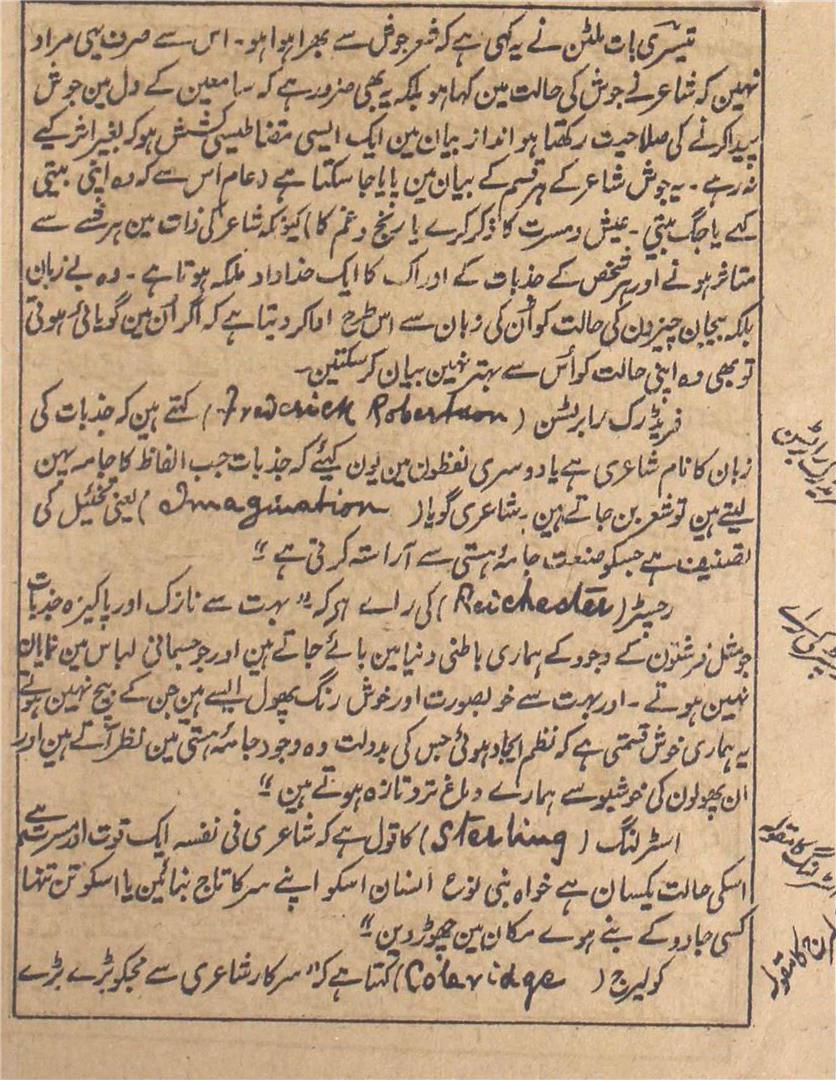 تیسری بات ملٹن نے یہ کہی ہے کہ شعر جوش سے بھرا ہوا ہو۔ اس سے صرف یہی مراد
نہین کہ شاعر نے جوش کی حالت مین کہا ہو بلکہ یہ بھی ضرور ہے کہ سامعین کے دل مین جوش
پیدا کرنے کی صلاحیت رکھتا ہو انداز بیان مین ایک ایسی مقناطیسی کشش ہو کہ بغیر اثر کیے
نہ رہے۔ یہ جوش شاعر کے ہر قسم کے بیان مین پایا جا سکتا ہے (عام اس سے کہ وہ اپنی بیتی
کہے یا جگ بیتی۔ عیش و مسرت کا ذکر کرے یا رنج و غم کا) کیونکہ شاعر کی ذات مین ہر شے سے
متاثر ہونے اور ہر شخص کے جذبات کے ادراک کا ایک خداداد ملکہ ہوتا ہے۔ وہ بے زبان
بلکہ بیجان چیزون کی حالت کو اُن کی زبان سے اس طرح ادا کر دیتا ہے کہ اگر اُن مین گویائی ہوتی
تو بھی وہ اپنی حالت کو اُس سے بہتر نہین بیان کر سکتین۔
فریڈرک رابرٹسن (Frederick Robertson) کہتے ہین کہ جذبات کی
زبان کا نام شاعری ہے یا دوسری لفظون مین یون کہیئے کہ جذبات جب الفاظ کا جامہ پہن
لیتے ہین تو شعر بن جاتے ہین۔ شاعری گویا (Imagination) یعنی تخئیل کی
تصنیف ہے جسکو صنعت جامۂ ہستی سے آراستہ کرتی ہے “
رچسٹر (Reichester) کی راے ہے کہ ” بہت سے نازک اور پاکیزہ جذبات
جو مثل فرشتون کے وجود کے ہماری باطنی دنیا مین پائے جاتے ہین اور جو جسمانی لباس مین نمایان
نہین ہوتے۔ اور بہت سے خوبصورت اور خوش رنگ پھول ایسے ہین جن کے بیج نہین ہوتے
یہ ہماری خوش قسمتی ہے کہ نظم ایجاد ہوئی جس کی بدولت وہ وجود جامۂ ہستی مین نظر آتے ہین اور
ان پھولون کی خوشبو سے ہمارے دماغ تر و تازہ ہوتے ہین “
اسٹرلنگ (Sterling) کا قول ہے کہ شاعری فی نفسہ ایک قوت اور مسرت ہے
اسکی حالت یکسان ہے خواہ بنی نوع انسان اسکو اپنے سر کا تاج بنائین یا اسکو تن تنہا
کسی جادو کے بنے ہوے مکان مین چھوڑ دین “
کولیرج (Coleridge) کہتا ہے کہ ” سرکار شاعری سے مجکو بڑے بڑے
اسٹرلنگ کا مقولہ
کولیرج کا مقولہ